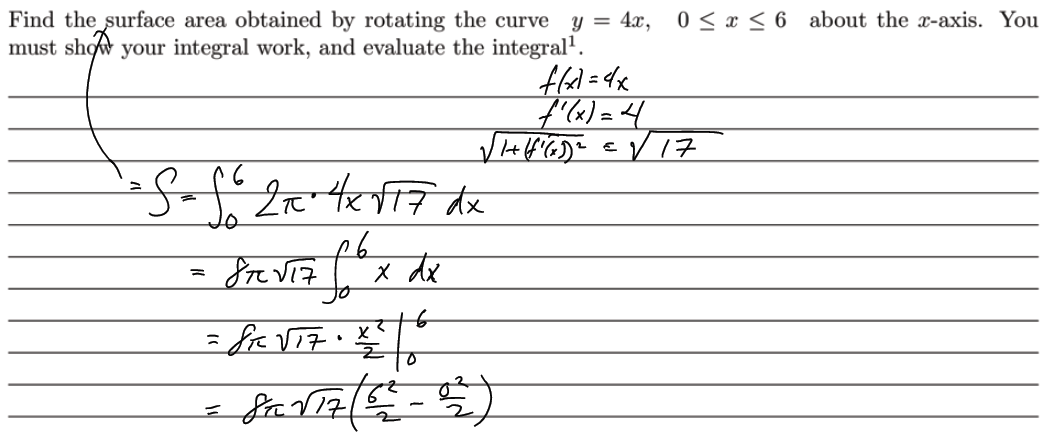 Find the surface area obtained by rotating the curve y = 4x, 0 ≤ x ≤ 6 about the x-axis. You
must show your integral work, and evaluate the integral¹.
f(x) = 4x
f'(x) = 4
√(1+(f'(x))²) = √17
= S = ∫₀⁶ 2π · 4x √17 dx
= 8π √17 ∫₀⁶ x dx
= 8π √17 · x²/2 |₀⁶
= 8π √17 (6²/2 - 0²/2)